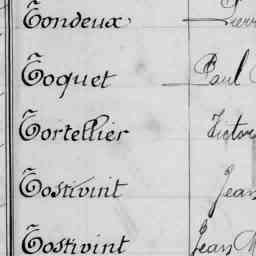 Tondeux Pierr
Toquet Paul
Tortellier Victor
Tostivint Jean
Tostivint Jean M